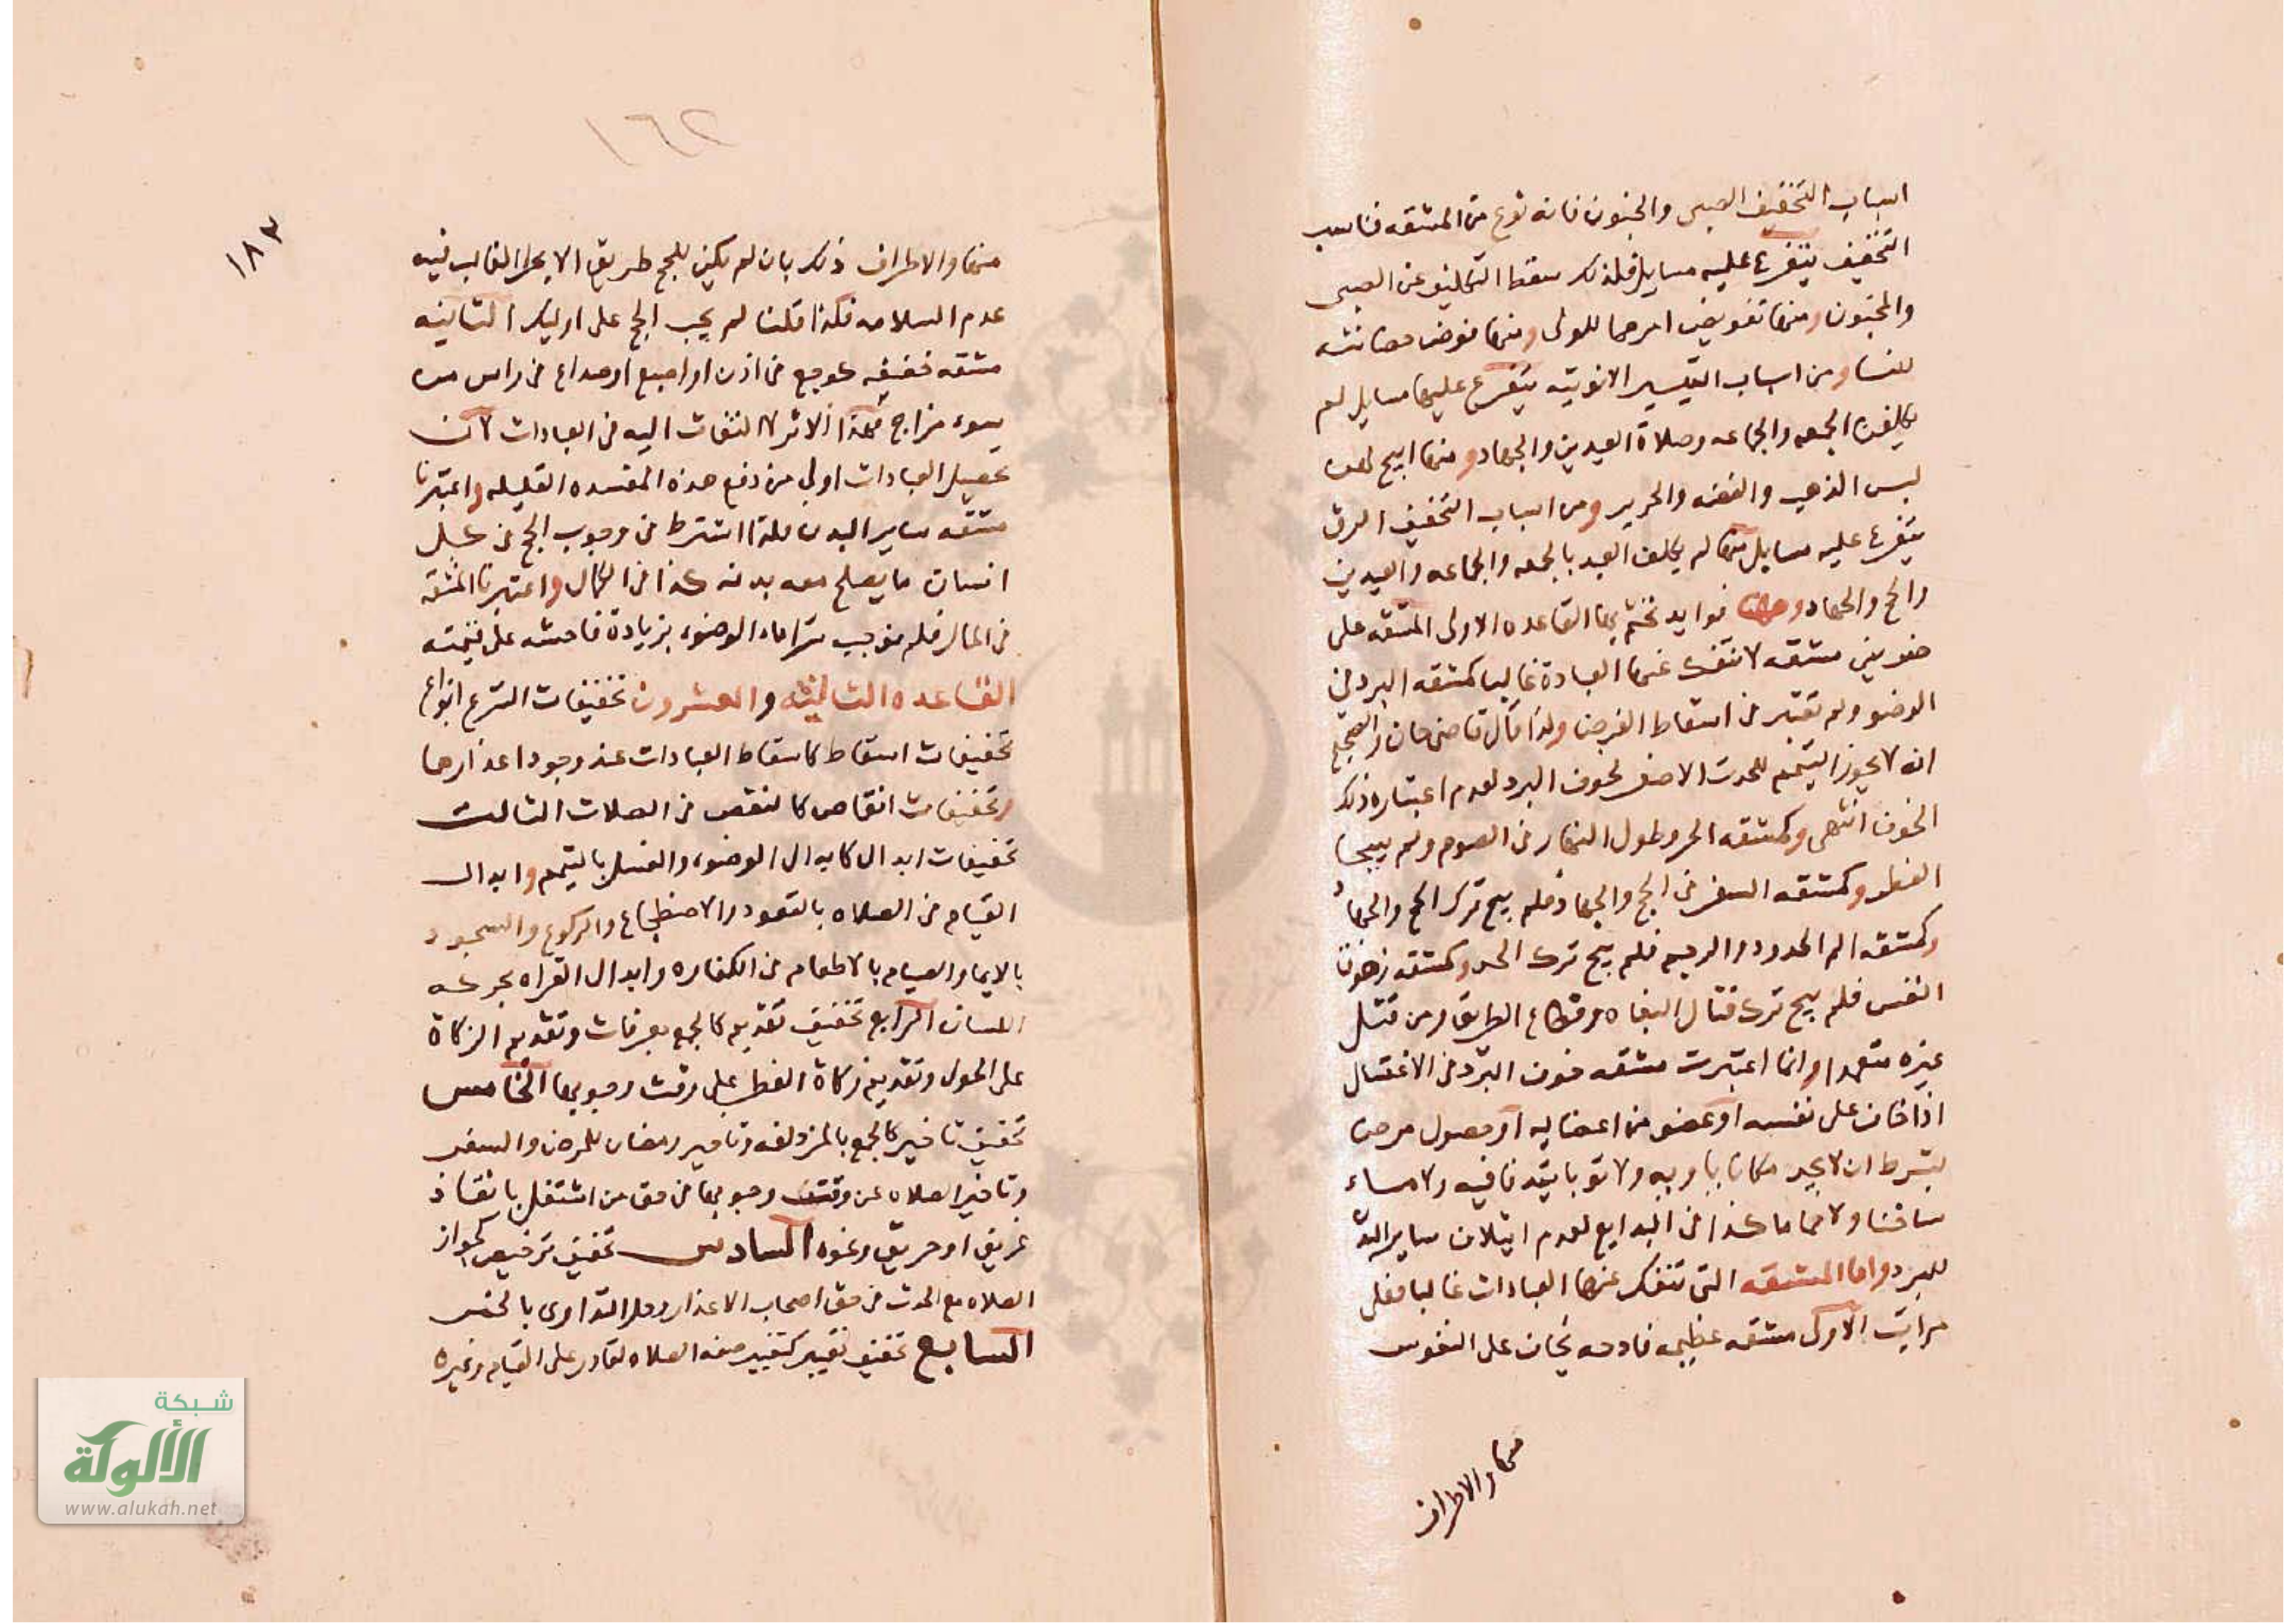 اسباب التخفيف الصبى والجنون فانه نوع من المشقه فناسب
التخفيف يتفرع عليه مسايل فلذلك سقط التكليف عن الصبى
والمجنون ومنها تفويض امرهما للولى ومنها فوض حضانته
للنسا ومن اسباب التيسير الانوثيه يتفرع عليها مسايل لم
يكلفن الجمعه والجماعه وصلاة العيدين والجهاد ومنها ابيح لهن
لبس الذهب والفضه والحرير ومن اسباب التخفيف الرق
يتفرع عليه مسايل منها لم يكلف العبد بالجمعه والجماعه والعيدين
والحج والجهاد وهنا فوايد نختم بها القاعده الاولى المشقه على
ضربين مشقه لا تنفك عنها العبادة غالبا كمشقه البرد فى
الوضو ولم تعتبر فى اسقاط الفرض ولذا قال قاضى خان الصحيح
انه لا يجوز التيمم للحدث الاصغر لخوف البرد لعدم اعتبار ذلك
الخوف انتهى وكمشقه الحر وطول النهار فى الصوم ولم يبيحا
الفطر وكمشقه السفر فى الحج والجهاد فلم يبح ترك الحج والجهاد
وكمشقه الم الحدود والرجم فلم يبح ترك الحد وكمشقه زهوق
النفس فلم يبح ترك قتال البغاه وقطاع الطريق ومن قتل
غيره متعمدا وانما اعتبرت مشقه خوف البرد فى الاغتسال
اذا خاف على نفسه او عضو من اعضايه او حصول مرض
بشرط ان لا يجد مكانا ياويه ولا ثوبا يتدفا فيه ولا ماء
ساخنا ولا حماما كذا فى البدايع لعدم ايتلاف ساير البدن
للبرد واما المشقه التى تنفك عنها العبادات غالبا فعلى
مراتب الاولى مشقه عظيمه فادحه يخاف على النفوس
منها والاطراف
١٦٢
١٨٣
منها والاطراف ذلك بان لم يكن للحج طريق الا بحرا الغالب فيه
عدم السلامه فكذا قلنا لم يجب الحج على اوليك الثانيه
مشقه خفيفه كوجع فى اذن او اصبع او صداع فى راس من
سوء مزاج فهذا لا اثر لا التفات اليه فى العبادات لان
تحصيل العبادات اولى من دفع هذه المفسده القليله واعتبرنا
مشقه ساير البدن فلذا اشترط فى وجوب الحج فى كل
انسان ما يصلح معه بدنه كذا فى الكمال واعتبرنا المشقه
فى المال فلم نوجب شرا ماء الوضوء بزيادة فاحشه على قيمته
القاعده الثالثه والعشرون تخفيفات الشرع انواع
تخفيفات اسقاط كاسقاط العبادات عند وجود اعذارها
وتخفيفات انقاص كالنقص فى الصلات الثالث
تخفيفات ابدال كابدال الوضوء والغسل بالتيمم وابدال
القيام فى الصلاه بالقعود والاضطجاع والركوع والسجود
بالايما والصيام بالاطعام فى الكفاره وابدال القراه بحركه
اللسان الرابع تخفيف تقديم كالجمع بعرفات وتقديم الزكاة
على الحول وتقديم زكاة الفطر على وقت وجوبها الخامس
تخفيف تاخير كالجمع بالمزدلفه وتاخير رمضان للمرض والسفر
وتاخير الصلاه عن وقت وجوبها فى حق من اشتغل بانقاذ
غريق او حريق ونحوه السادس تخفيف ترخيص كجواز
الصلاه مع الحدث فى حق اصحاب الاعذار وحل التداوى بالنجس
السابع تخفيف تغيير كتغيير صفه الصلاه لقادر على القيام وغيره
شبكة
الألوكة
www.alukah.net